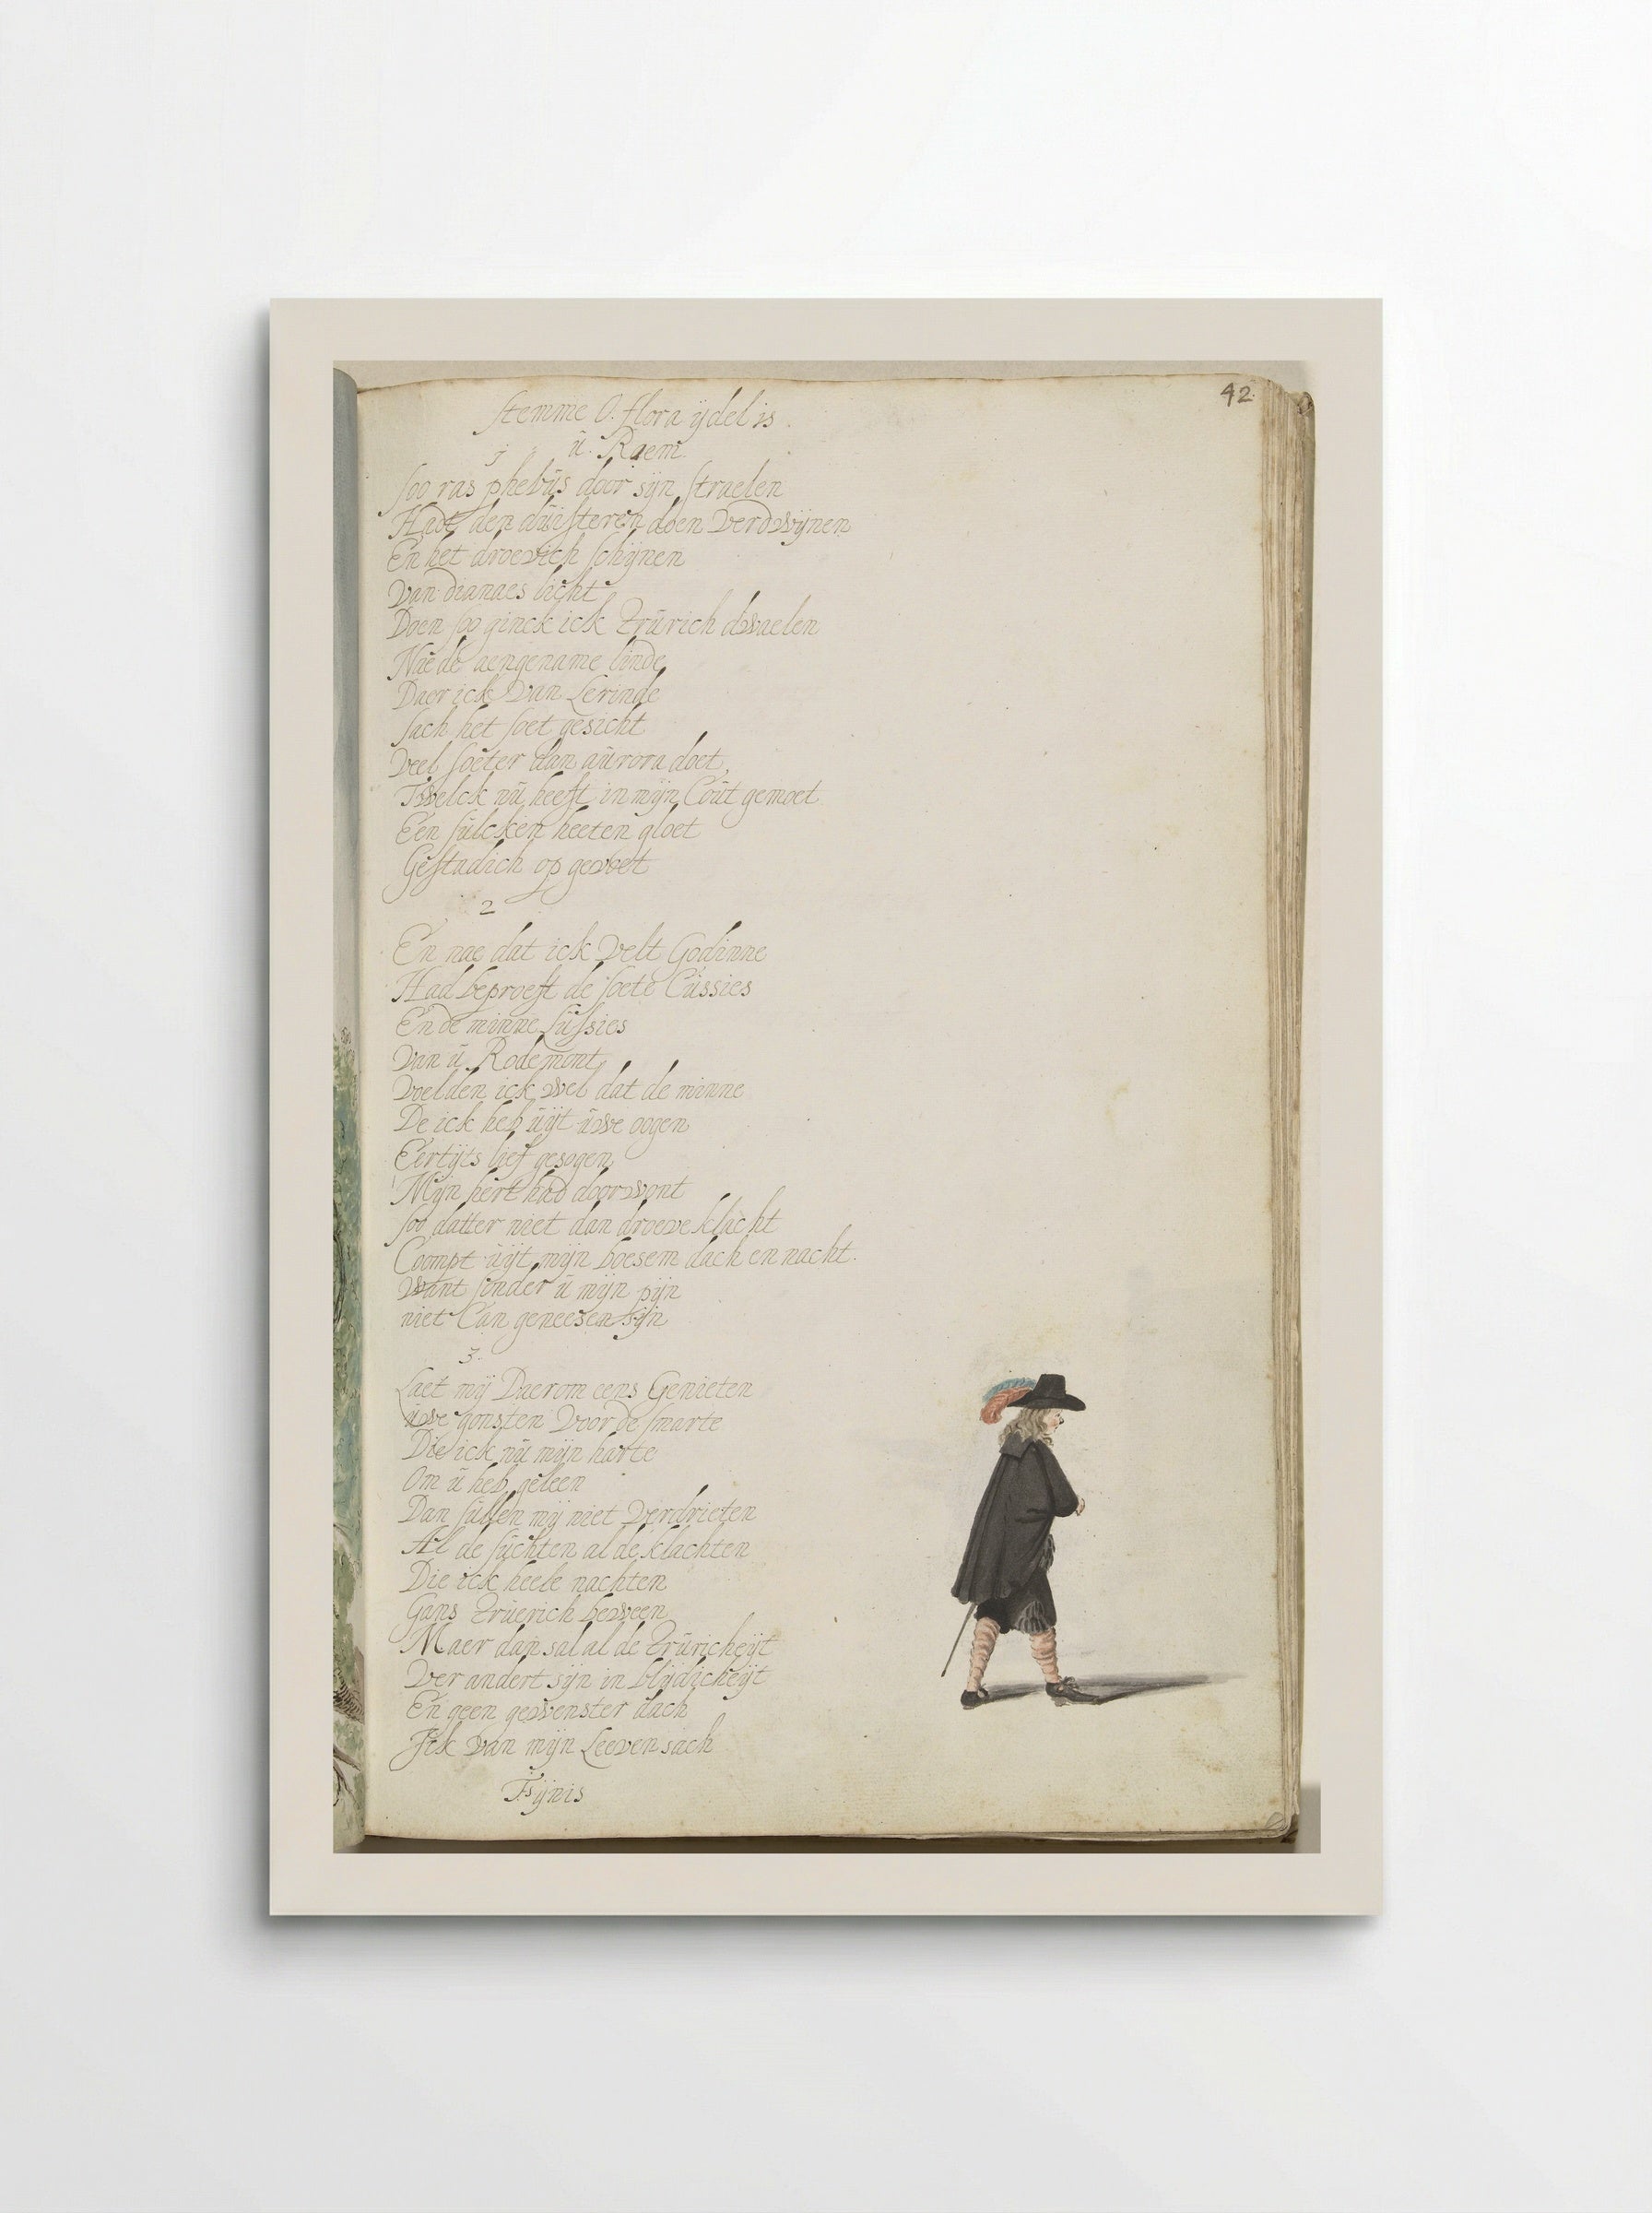 42
Stemme O. flora ijdel is
ú Raem.
1
soo ras phebús door sijn straelen
Hadt den dúisteren doen verdwijnen
En het droevich schijnen
Van dianaes licht
Doen soo ginck ick trúrich dwaelen
Nae de aengename linde
Daer ick van Lerinde
sach het soet gesicht
Veel soeter dan aúrora doet
Twelck nú heeft in mijn Coút gemoet
Een súlcken heeten gloet
Gestadich op gevoet
2
En nae dat ick velt Godinne
Had beproeft de soete Cússies
En de minne Lússies
Van ú Rodemont
Voelden ick wel dat de minne
De ick heb úijt úwe oogen
Eertijts lief gesogen
Mijn hert had doorwont
soo datter niet dan droeve klacht
Coompt úijt mijn boesem dach en nacht.
Want sonder ú mijn pijn
niet Can geneesen sijn
3.
Laet mij Daerom eens Genieten
úwe gonsten Voor de smarte
Die ick nú mijn harte
Om ú heb geleen
Dan súllen mij niet Verdrieten
Al de súchten al de klachten
Die ick heele nachten
Gans trúerich beween
Maer dan sal al de trúricheijt
Verandert sijn in blijdicheijt
En geen gewenster dach
Ick van mijn Leeven sach
Fijnis